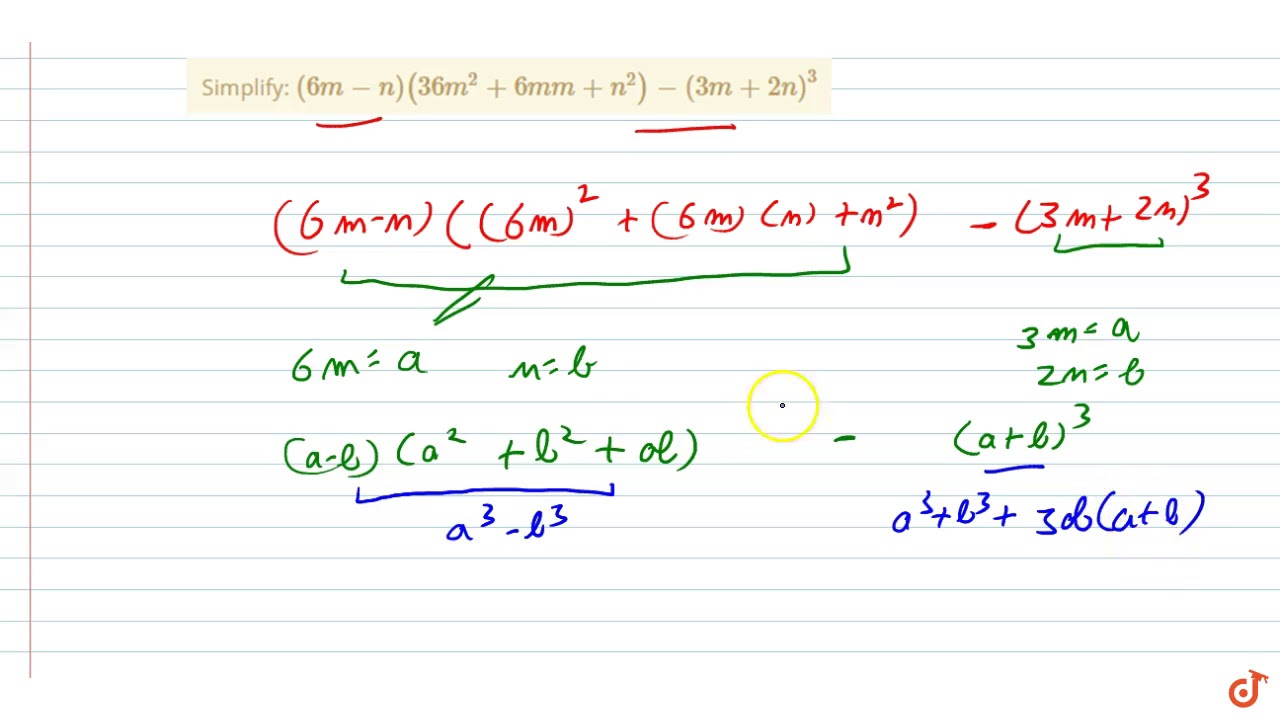 Simplify: (6m − n)(36m² + 6mm + n²) − (3m + 2n)³
(6m-n) ((6m)² + (6m) (n) + n²) - (3m + 2n)³
3m = a
6m = a n = b
2n = b
(a-b) (a² + b² + ab) - (a+b)³
a³ - b³ a³+b³+ 3ab(a+b)